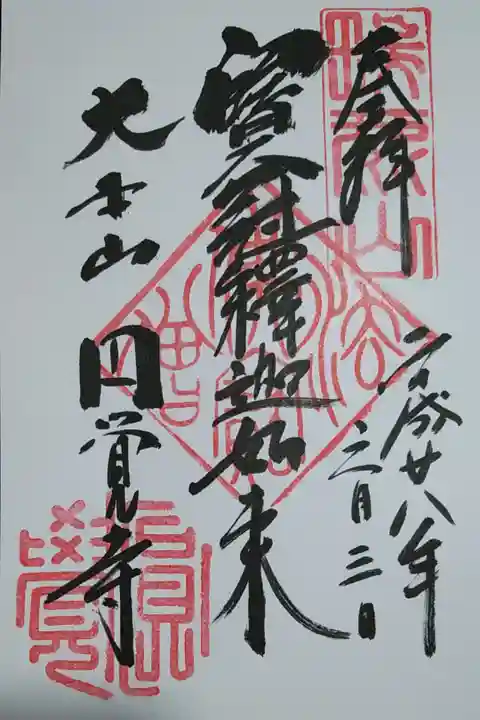 奉拝
平成廿八年
月三日
寶冠釋迦如来
大本山 円覚寺
瑞鹿山